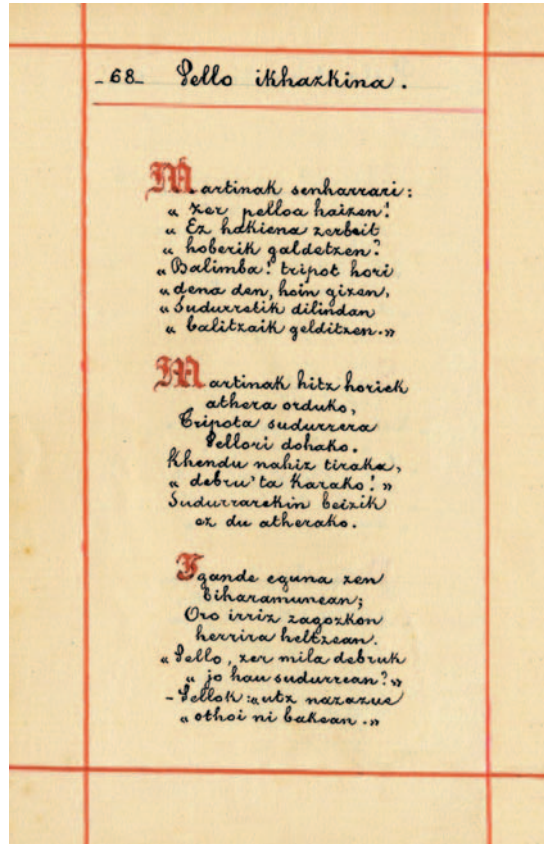 -68- Pello ikhazkina.
Martinak senharrari:
" Zer pelloa haizen!
" Ez hakiena zerbeit
" hoberik galdetzen?
" Balimba! tripot hori
" dena den, hoin gizen,
" Sudurretik dilindan
" balitzaik gelditzen."
Martinak hitz horiek
athera orduko,
Tripota sudurrera
Pellori dohako.
Khendu nahiz tiraka,
" debru 'ta Karako! "
Sudurrarekin beizik
ez du atherako.
Igande eguna zen
biharamunean;
Oro irriz zagozkon
herrira heltzean.
" Pello, zer mila debruk
" jo hau sudurrean? "
- Pellok: " utz nazazue
" othoi ni bakean. "